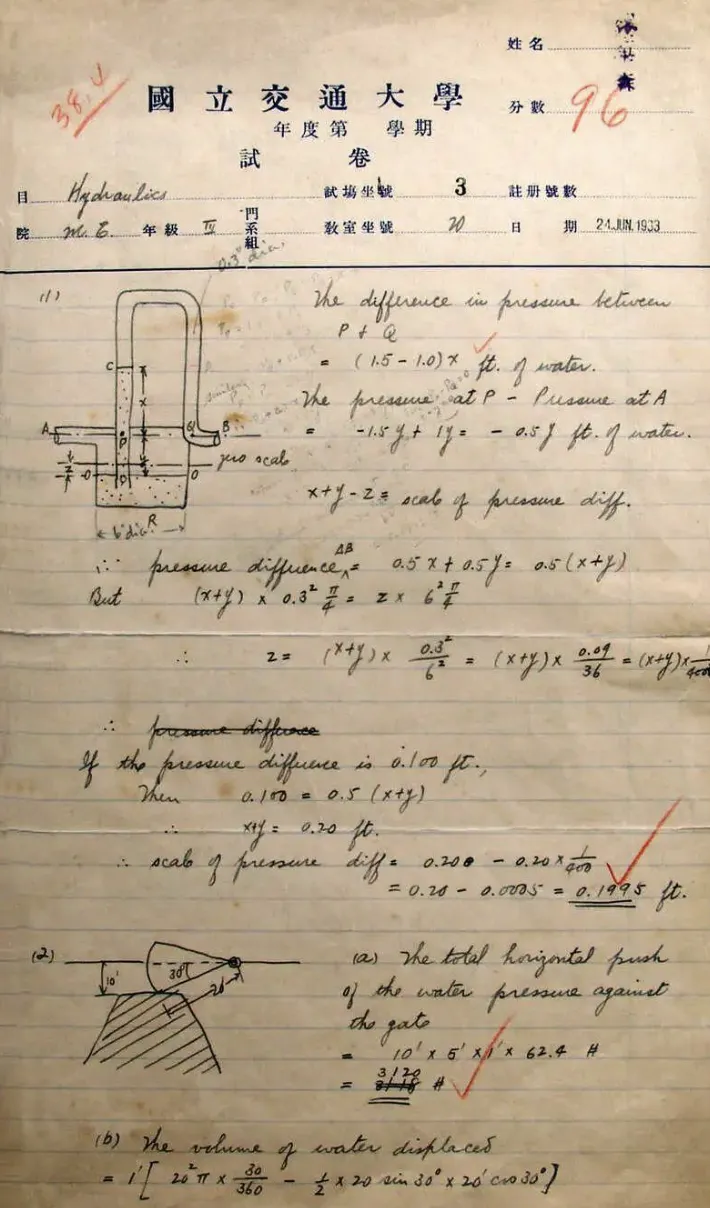 姓名
38.4
國立交通大學
分數 96
年度第 學期
試卷
目 Hydraulics 試場坐號 3 註册號數
院 M.E. 年級 IV 門系組 敎室坐號 20 日期 24 JUN. 1933
0.3" dia.
(1)
The difference in pressure between
P & Q
= (1.5 - 1.0) x ft. of water.
The pressure at P - Pressure at A
= -1.5 y + 1y = - 0.5 y ft. of water.
x+y-z = scale of pressure diff.
C
x
A
P
Q
B
y
zero scale
z
O
D
O
R
6" dia.
∴ pressure difference AB = 0.5 x + 0.5 y = 0.5 (x+y)
But (x+y) x 0.3² π/4 = z x 6² π/4
∴ z = (x+y) x 0.3²/6² = (x+y) x 0.09/36 = (x+y) x 1/400
∴ pressure difference
If the pressure difference is 0.100 ft.,
Then 0.100 = 0.5 (x+y)
∴ x+y = 0.20 ft.
∴ scale of pressure diff = 0.200 - 0.20 x 1/400
= 0.20 - 0.0005 = 0.1995 ft.
(2)
10'
30°
20'
(a) The total horizontal push
of the water pressure against
the gate
= 10' x 5' x 1' x 62.4 #
= 3120 #
(b) The volume of water displaced
= 1' [ 20² π x 30/360 - 1/2 x 20 sin 30° x 20' cos 30° ]